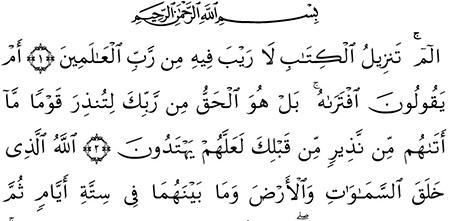 بِسْمِ اللَّهِ الرَّحْمَٰنِ الرَّحِيمِ
الٓمٓ ۚ تَنزِيلُ الْكِتَابِ لَا رَيْبَ فِيهِ مِن رَّبِّ الْعَالَمِينَ ﴿١﴾ أَمْ
يَقُولُونَ افْتَرَىٰهُ ۚ بَلْ هُوَ الْحَقُّ مِن رَّبِّكَ لِتُنذِرَ قَوْمًا مَّآ
أَتَىٰهُم مِّن نَّذِيرٍ مِّن قَبْلِكَ لَعَلَّهُمْ يَهْتَدُونَ ﴿٢﴾ اللَّهُ الَّذِى
خَلَقَ السَّمَٰوَٰتِ وَالْأَرْضَ وَمَا بَيْنَهُمَا فِى سِتَّةِ أَيَّامٍ ثُمَّ